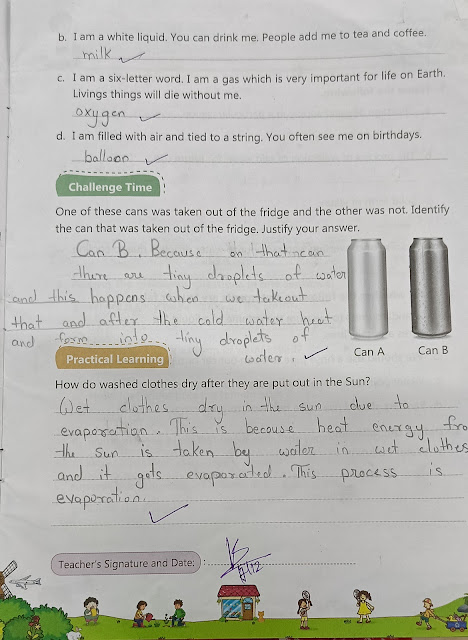 b. I am a white liquid. You can drink me. People add me to tea and coffee.
milk
c. I am a six-letter word. I am a gas which is very important for life on Earth.
Livings things will die without me.
oxygen
d. I am filled with air and tied to a string. You often see me on birthdays.
balloon
Challenge Time
One of these cans was taken out of the fridge and the other was not. Identify
the can that was taken out of the fridge. Justify your answer.
Can B. Because on that can
there are tiny droplets of water
and this happens when we takeout
that and after the cold water heat
and form into tiny droplets of
water.
Can A Can B
Practical Learning
How do washed clothes dry after they are put out in the Sun?
Wet clothes dry in the sun due to
evaporation. This is because heat energy fro
the sun is taken by water in wet clothes
and it gets evaporated. This process is
evaporation.
Teacher's Signature and Date: